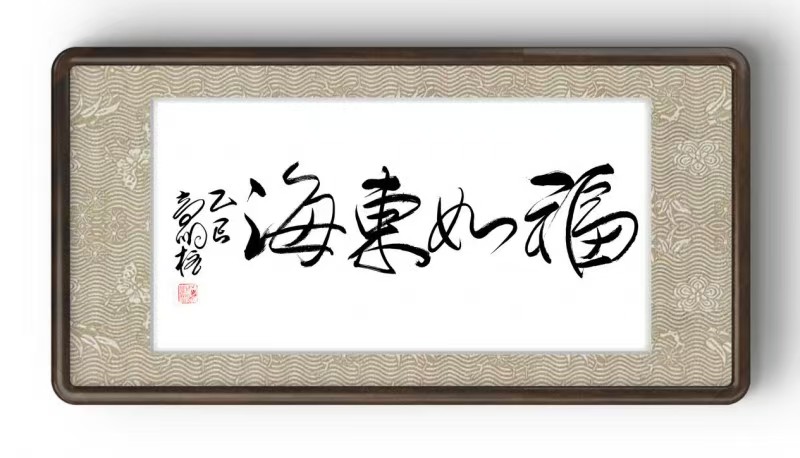 福如東海
乙巳
高明柱